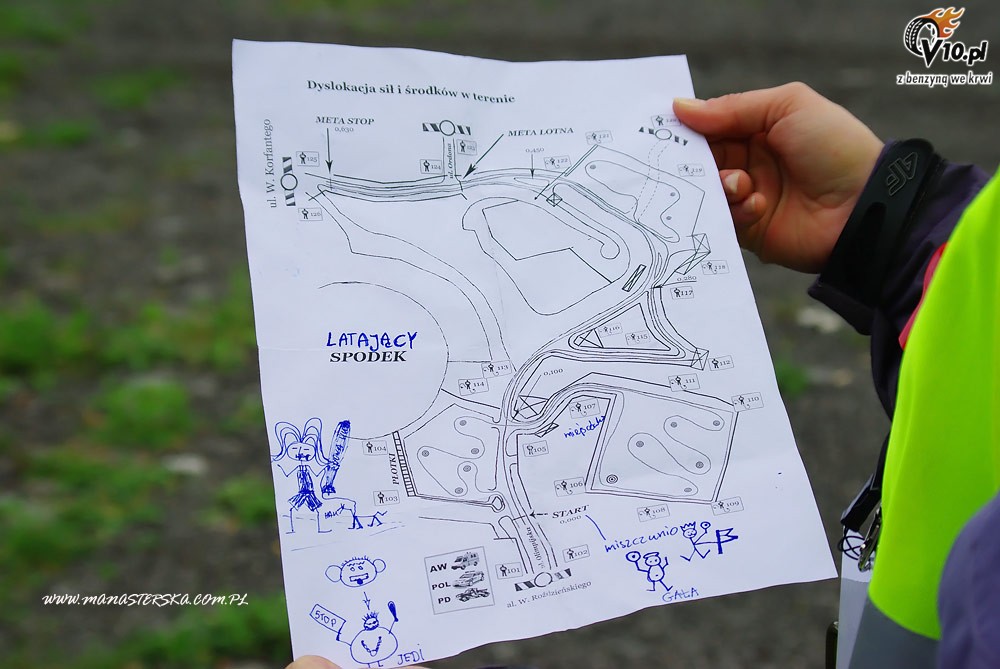 V10.pl
z benzyną we krwi
Dyslokacja sił i środków w terenie
META STOP
0,630
META LOTNA
0,450
ul. W. Korfantego
ul. Ordona
125
124
123
122
121
120
126
118
0,280
117
116
115
112
113
114
0,100
111
110
107
LATAJĄCY
SPODEK
104
105
PŁOTKI
103
106
108
109
START
0,000
miszczunio
ul. Olimpijska
101
102
al. W. Roździeńskiego
AW
POL
PD
GAŁA
STOP
JEDI
www.manasterska.com.pl